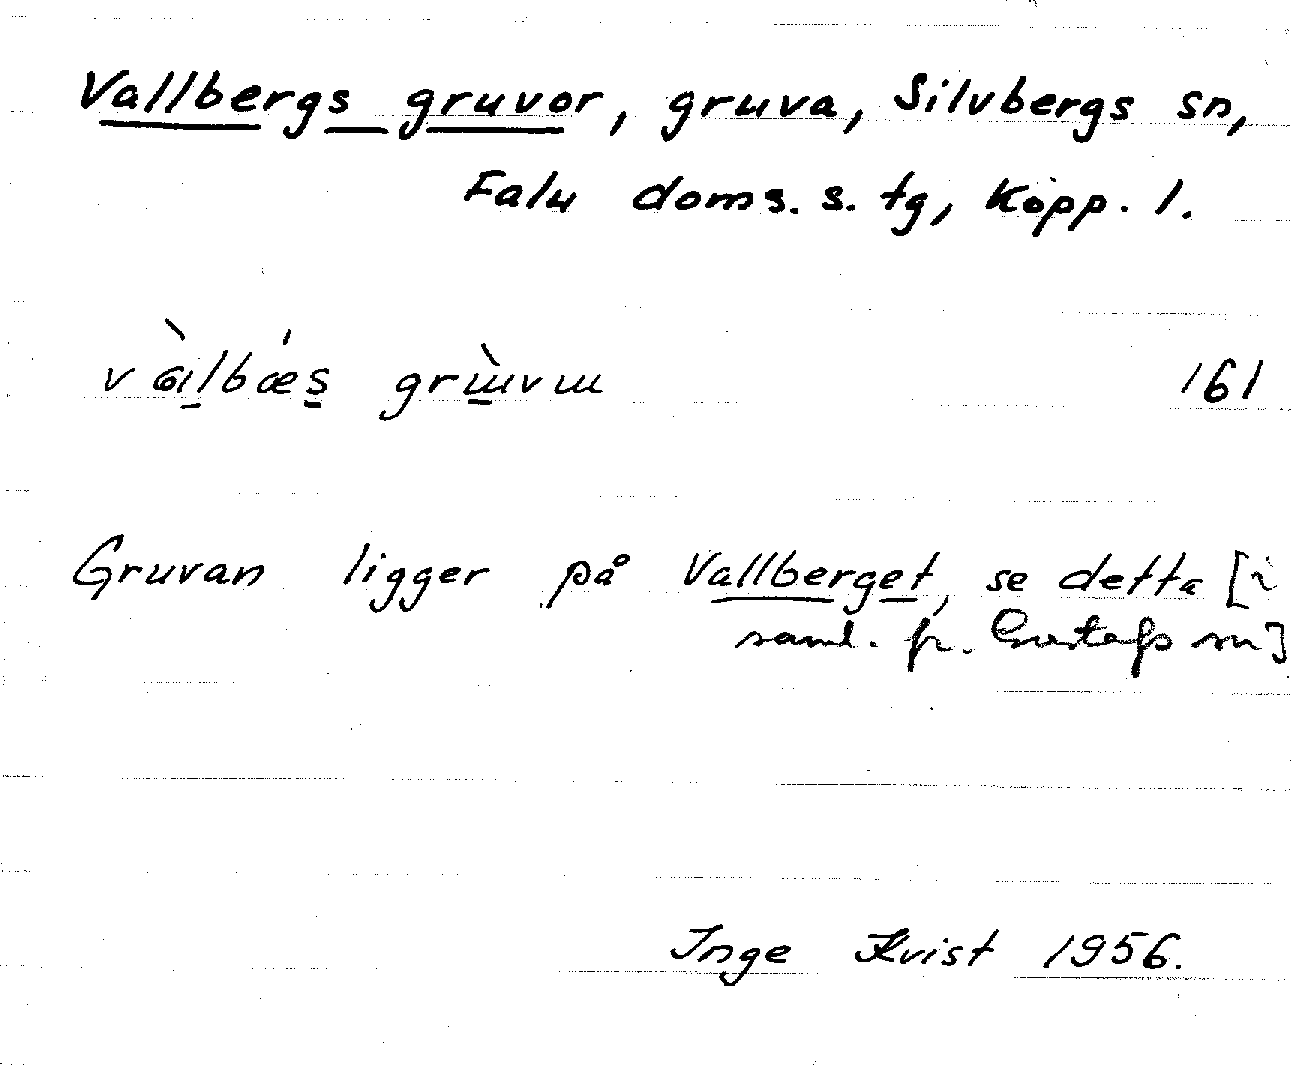 Vallbergs gruvor, gruva, Silvbergs sn,
Falu doms. s. tg, Kopp. l.
grɯ̀vɯ 161
Gruvan ligger på Vallberget, se detta [i
saml. fr. Gustafs sn]
Inge Kvist 1956.